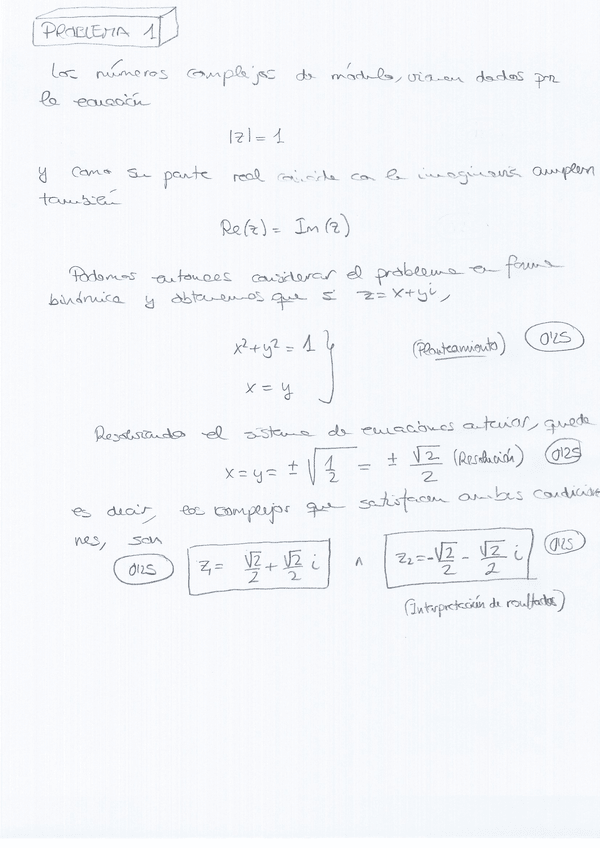 PROBLEMA 1
Los números complejos de módulo, vienen dados por
la ecuación
|z| = 1
y como su parte real coincide con la imaginaria cumplen
también
Re(z) = Im(z)
Podemos entonces considerar el problema en forma
binómica y obtenemos que si z = x+yi,
x²+y² = 1
(Planteamiento) 0'25
x = y
Resolviendo el sistema de ecuaciones anterior, queda
x = y = ± √(1/2) = ± √2/2 (Resolución) 0'25
es decir, los complejos que satisfacen ambas condicio
nes, son
0'25 z₁ = √2/2 + √2/2 i ∧ z₂ = -√2/2 - √2/2 i 0'25
(Interpretación de resultados)